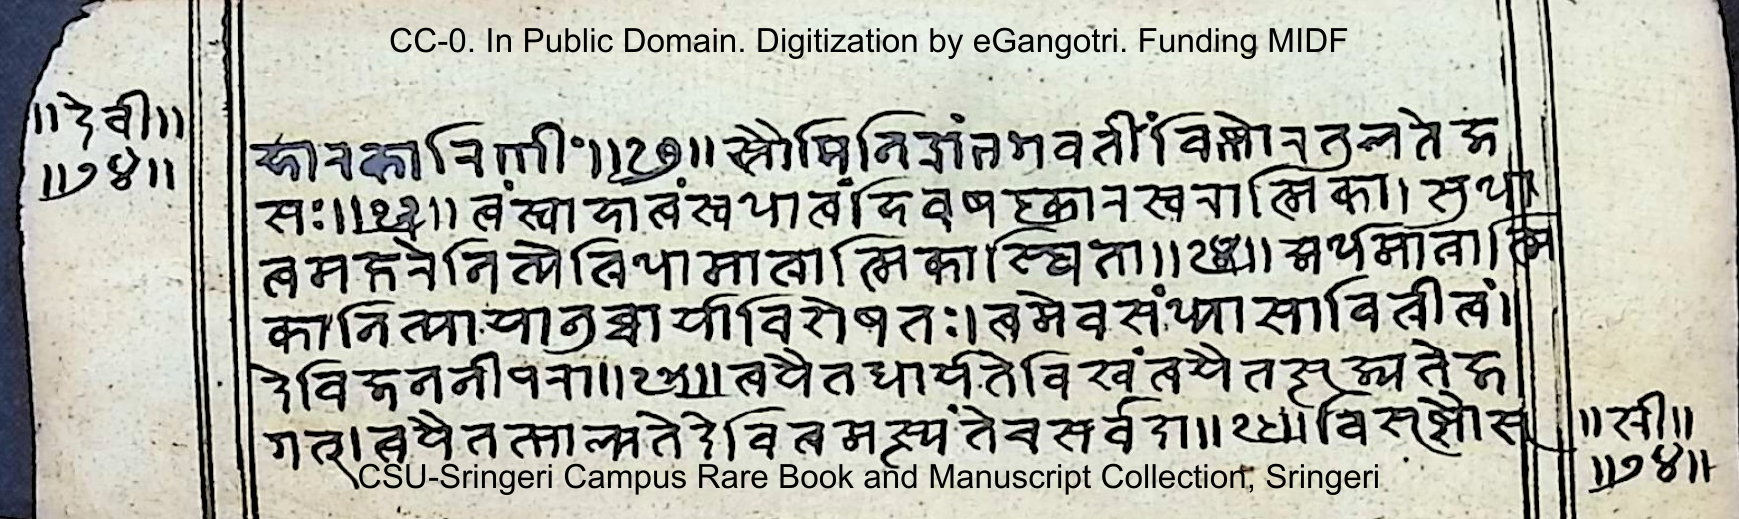 CC-0. In Public Domain. Digitization by eGangotri. Funding MIDF
॥देवी॥
॥७४॥
हारकारिणीं॥७१॥स्तौमिनिद्रांभगवतींविष्णोरतुलतेज
सः॥७२॥त्वंस्वाहात्वंस्वधात्वंहिवषट्कारस्वरात्मिका।सुधा
त्वमक्षरेनित्येत्रिधामात्रात्मिकास्थिता॥७४॥अर्धमात्रात्मि
कानित्यायानुच्चार्याविशेषतः।त्वमेवसंध्यासावित्रीत्वं
देविजननीपरा॥७५॥त्वयैतधार्यतेविश्वंत्वयैतत्सृज्यतेज
गत्।त्वयैतत्पाल्यतेदेवित्वमत्स्यंतेचसर्वदा॥७६॥विसृष्टौस
॥सी॥
॥७४॥
CSU-Sringeri Campus Rare Book and Manuscript Collection, Sringeri